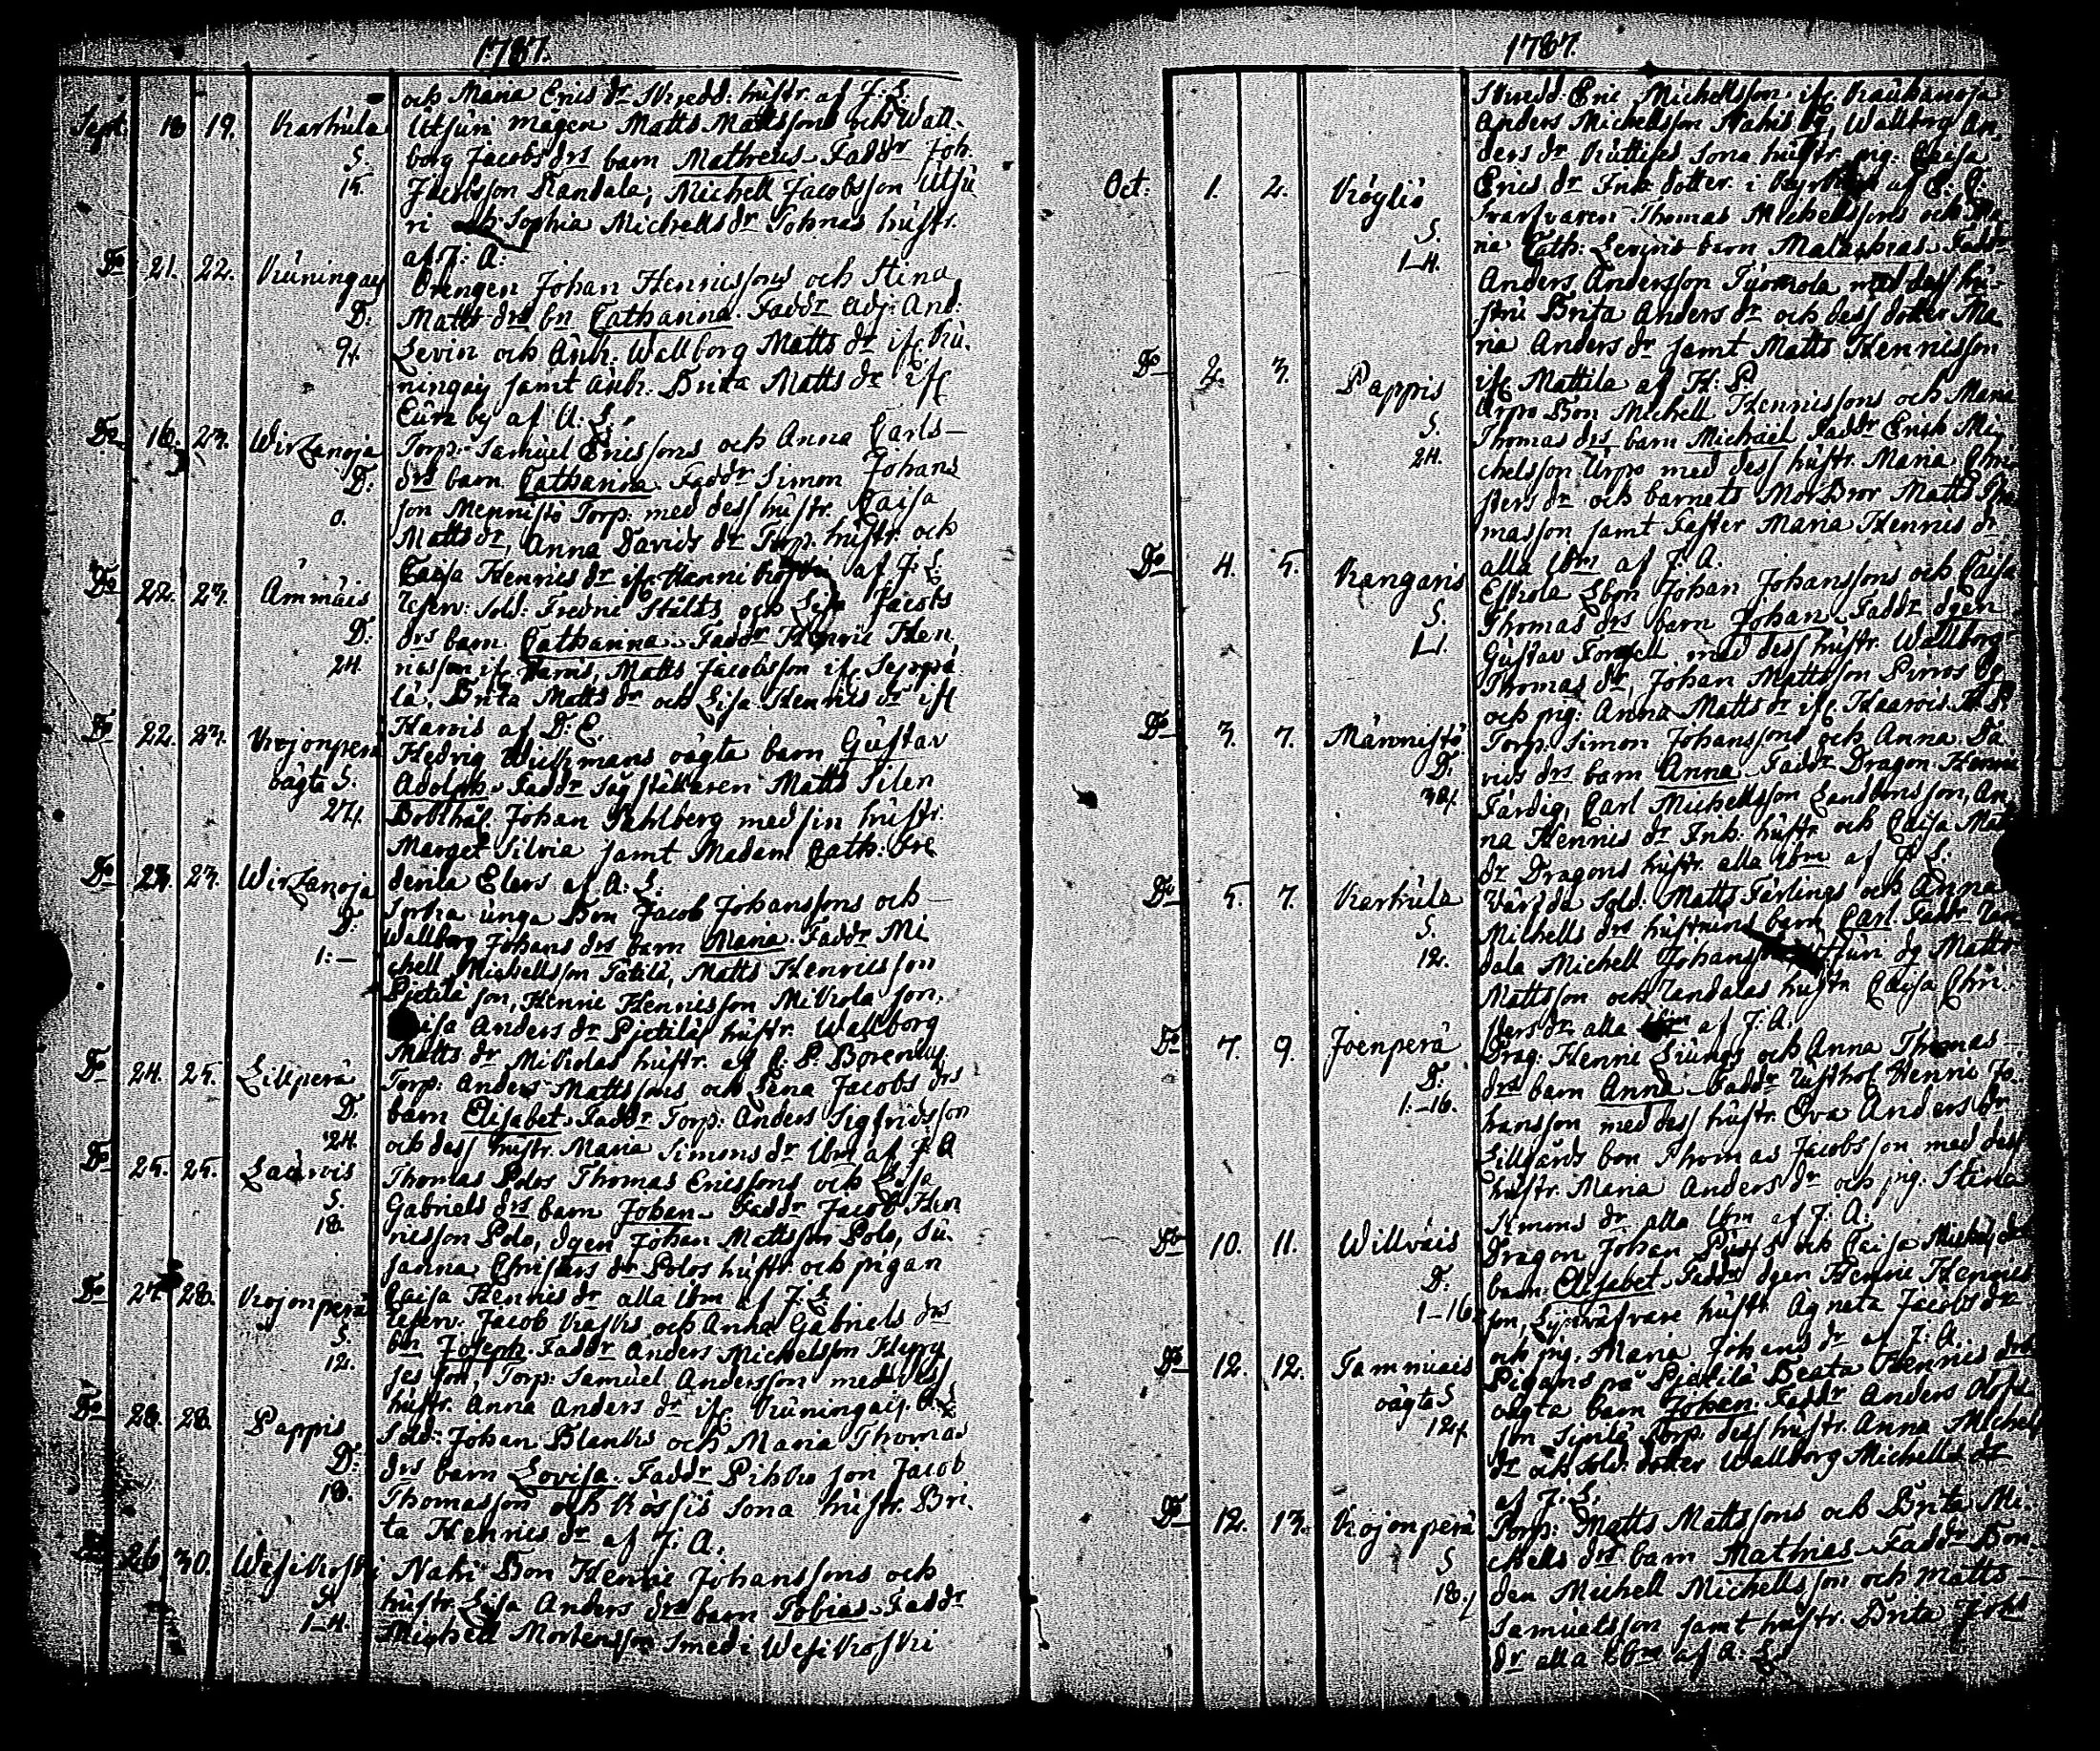 1787.
och Maria Erics dr Skredd: hustr. af J. L.
Sept. 18 19. Karhula Utsuri mågen Matts Mattssons och Wall-
S. borg Jacobs drs barn Mattheus Faddr Joh.
15. Jacobsson Randala, Michell Jacobsson Utsu
ri Sophia Michells dr Tohnas hustr.
af J: A:
Do 21. 22. Kuningais Drengen Johan Henricssons och Stina
D: Matts drs bn Catharina. Faddr Adj: And.
9. Levin och Änk. Wallborg Matts dr ifr Ku-
ningais samt änk. Brita Matts dr ifr
Eura by af A: L.
Do 16. 23. Wirkanoja Torp: Samuel Ericssons och Anna Carls-
D: drs barn Catharina. Faddr Simon Johans
0. son Mennistö Torp. med dess hustr. Caisa
Matts dr, Anna Davids dr Torp. hustr. och
Caisa Henrics dr ifr af J: L
Do 22. 23. Ämmäis Reserv: Sold: Fredric Stålts och Lisa Jacobs
D: drs barn Catharina. Faddr Henric Hen
24. ricsson ifr Harois, Matts Jacobsson ifr Seppä
lä, Brita Matts dr och Lisa Henrics dr ifr
Harois af D: C.
Do 22. 23. Kojonperä Hedvig Wickmans oägta barn Gustav
oägta S. Adolph. Faddr Matts Silen
27. Johan Pahlberg med sin hustr.
Marget Silvia samt Madam Cath: Fre
derica Elers af A: L.
Do 23. 23. Wirkanoja Sorkia unga Bon Jacob Johanssons och
D: Wallborg Johans drs barn Maria. Faddr Mi
1:- chell Michellsson Tätilä, Matts Henricsson
Pjetilä son, Henric Henricsson Mikola son,
Caisa Anders dr Pjetilä hustr. Wallborg
Matts dr Mikolas hustr. af C. P. Borenius.
Do 24. 25. Lillperä Torp: Anders Mattssons och Lena Jacobs drs
D. barn Elisabet. Faddr Torp: Anders Sigfridsson
24. och dess hustr. Maria Simons dr ibm af J: A
Do 25. 25. Laurois Thomas Polos Thomas Ericssons och Lisa
S. Gabriels drs barn Johan. Faddr Jacob Hen
18. ricsson Polo, dgen Johan Mattsson Polo, Su-
sanna Christers dr Polos hustr och pigan
Caisa Henrics dr alla ibm af J. L
Do 27. 28. Kojonperä Reserv: Jacob Kasks och Anna Gabriels drs
S. bn Joseph. Faddr Anders Michelsson
12. son, Torp: Samuel Andersson med dess
hustr. Anna Anders dr ifr Kuningais. A: L
Do 28. 28. Pappis Sold: Johan Blanks och Maria Thomas
D: drs barn Lovisa. Faddr Pihko son Jacob
18. Thomasson och Kössis Sona hustr. Bri-
ta Henrics dr af J: A.
Do 26. 30. Wesikoski Naki Bon Henric Johanssons och
S. hustr. Lisa Anders drs barn Tobias. Faddr
1-4. Michell Mortensson Smed i Wesikoski
1787.
Skredd. Eric Michellsson ifr Kaukanoja
Anders Michellsson Nahis by, Wallborg An
ders dr Kuttises Sona hustr. pig. Caisa
Erics dr Ink: dotter i af C: C:
Oct: 1. 2. Köyliö Svarfvaren Thomas Michelssons och Ma
S. ria Cath: Levins barn Malachias. Faddr
1-4. Anders Andersson Tyomola med dess hu-
stru Brita Anders dr och dess dotter Ma
ria Anders dr samt Matts Henricsson
ifr Mattila af H: P
Do 2. 3. Pappis Urpo Bon Michell Henricssons och Maria
S. Thomas drs barn Michael Faddr Erich Mi
24. chelsson Urpo med dess hustr. Maria Chri
sters dr och barnets MorBror Matts Tho
masson samt Faster Maria Henrics dr
alla ibm af J. A.
Do 4. 5. Kangaris Eskola Lbon Johan Johanssons och Caisa
S. Thomas drs barn Johan. Faddr dgen
1-1. Gustav med dess hustr. Wallborg
Thomas dr, Johan Mattsson
och pig: Anna Matts dr ifr. Haarois. H. P
Do 3. 7. Männistö Torp. Simon Johanssons och Anna Da
D. vids drs barn Anna. Faddr Dragon Henric
36. Färdig, Carl Michellsson Landbonsson, An
na Henrics dr Ink: hustr och Caisa Matts
dr Dragons hustr. alla ibm af J: L.
Do 5. 7. Karhula Värfda Sold: Matts Färlings och Anna
S. Michells drs hustruns barn Carl. Faddr Ran-
12. dala Michell Johansson, Utsuri dg Matts
Mattsson och Randalas hustr. Caisa Chri-
sters dr alla ibm af J: A.
Do 7. 9. Joenperä Drag: Henric Liungs och Anna Thomas
D: drs barn Anna. Faddr Rusthol Henric Jo-
1:-16. hansson med dess hustr. Eva Anders dr
Lillgårds bon Thomas Jacobsson med dess
hustr. Maria Anders dr och pig: Stina
Simons dr alla ibm af J: A.
Do 10. 11. Willväis Dragon Johan och Caisa Michels dr
D: barn Elisabet. Faddr dgen Henric Henrics
1-16. son, hustr. Agneta Jacobs dr
och pig. Maria Johans dr af J: A.
Do 12. 12. Tammiais Pigans på Pjetilä Beata Henrics drs
oägta S oägta barn Johan. Faddr Anders
12. son Torp. dess hustr. Anna Michels
dr och sold: dotter Wallborg Michells dr
af J. L.
Do 12. 13. Kojonperä Torp: Matts Mattssons och Brita Mi-
S chells drs barn Mathias. Faddr Bon-
18. den Michell Michellsson och Matts
Samuelsson samt hustr. Brita Jobs
dr alla ibm af A: L.